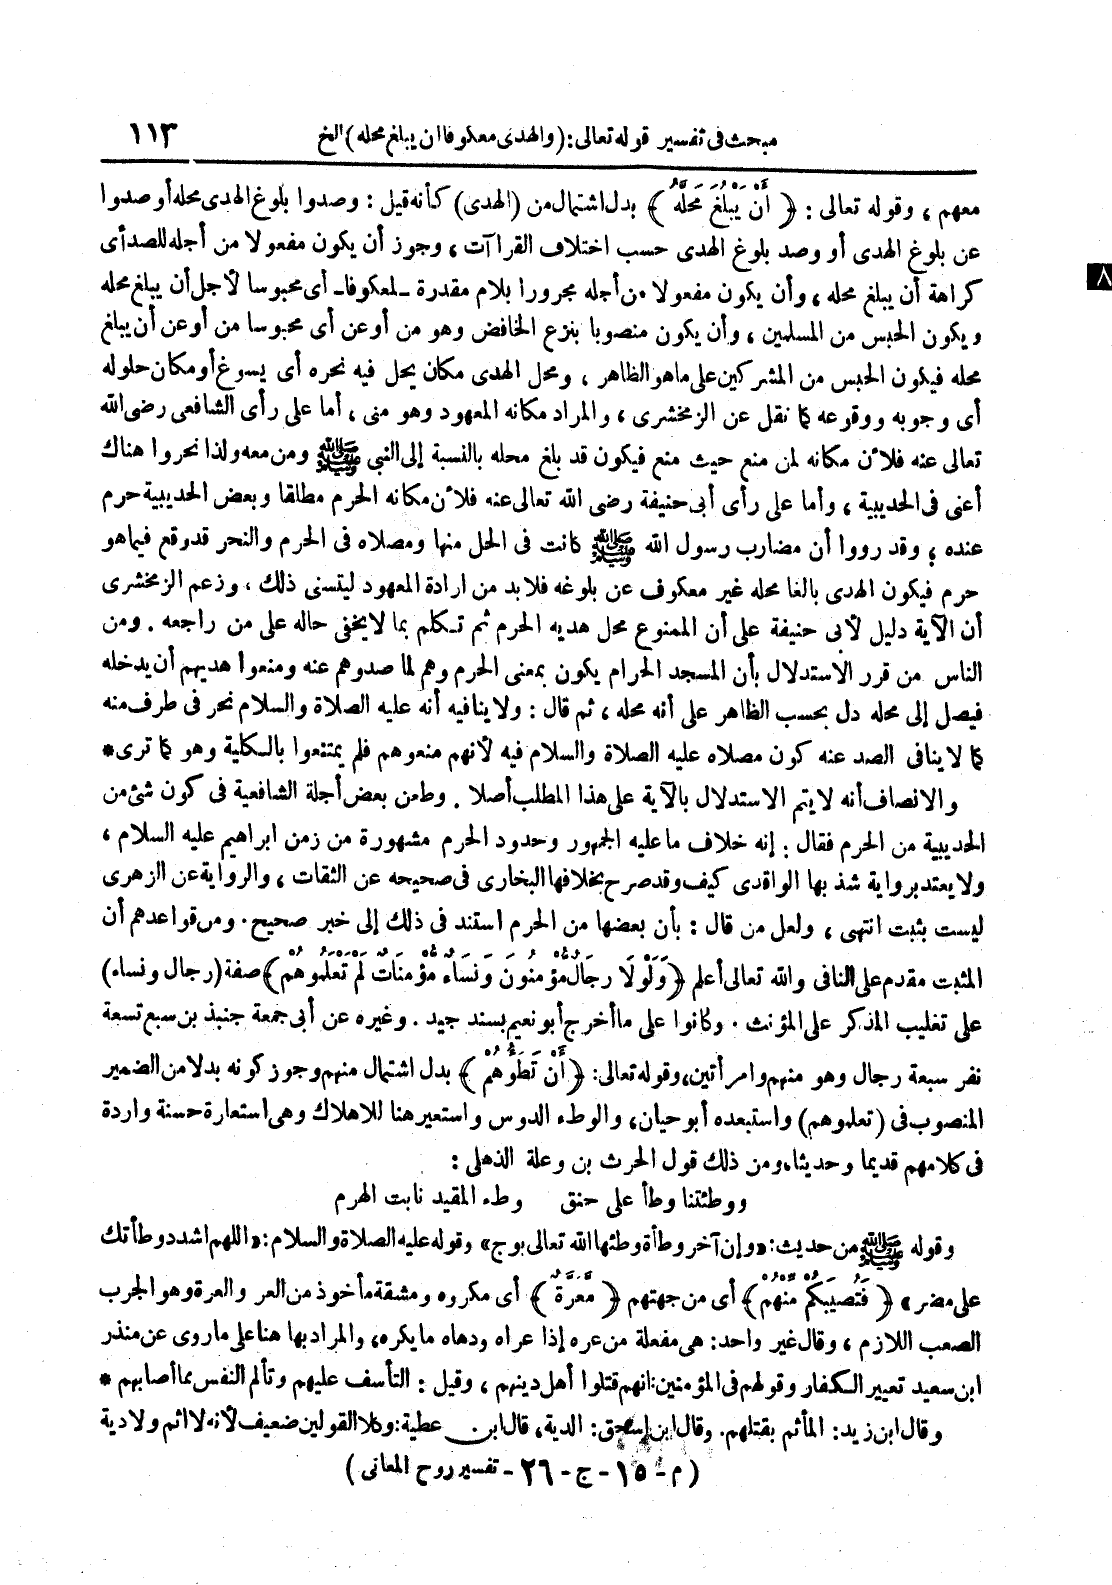 مبحث فى تفسير قوله تعالى: (والهدى معكوفا ان يبلغ محله) الخ ١١٣
معهم ، وقوله تعالى : ﴿ أَنْ يَبْلُغَ مَحِلَّهُ ﴾ بدل اشتمال من (الهدى) كأنه قيل : وصدوا بلوغ الهدى محله أو صدوا
عن بلوغ الهدى أو وصد بلوغ الهدى حسب اختلاف القرا آت ، وجوز أن يكون مفعولا من أجله للصد أى
كراهة أن يبلغ محله ، وأن يكون مفعولا من أجله مجرورا بلام مقدرة ـ لمعكوفا ـ أى محبوسا لأجل أن يبلغ محله
ويكون الحبس من المسلمين ، وأن يكون منصوبا بنزع الخافض وهو من أو عن أى محبوسا من أو عن أن يبلغ
محله فيكون الحبس من المشركين على ما هو الظاهر ، ومحل الهدى مكان يحل فيه نحره أى يسوغ أو مكان حلوله
أى وجوبه ووقوعه كما نقل عن الزمخشرى ، والمراد مكانه المعهود وهو منى ، أما على رأى الشافعى رضى الله
تعالى عنه فلأن مكانه لمن منع حيث منع فيكون قد بلغ محله بالنسبة إلى النبى ﷺ ومن معه ولذا نحروا هناك
أعنى فى الحديبية ، وأما على رأى أبى حنيفة رضى الله تعالى عنه فلأن مكانه الحرم مطلقا وبعض الحديبية حرم
عنده ؛ وقد رووا أن مضارب رسول الله ﷺ كانت فى الحل منها ومصلاه فى الحرم والنحر قد وقع فيما هو
حرم فيكون الهدى بالغا محله غير معكوف عن بلوغه فلا بد من ارادة المعهود ليتسنى ذلك ، وزعم الزمخشرى
أن الآية دليل لأبى حنيفة على أن الممنوع محل هديه الحرم ثم تكلم بما لا يخفى حاله على من راجعه . ومن
الناس من قرر الاستدلال بأن المسجد الحرام يكون بمعنى الحرم وهم لما صدوهم عنه ومنعوا هديهم أن يدخله
فيصل إلى محله دل بحسب الظاهر على أنه محله ، ثم قال : ولا ينافيه أنه عليه الصلاة والسلام نحر فى طرف منه
كما لا ينافى الصد عنه كون مصلاه عليه الصلاة والسلام فيه لأنهم منعوهم فلم يمتنعوا بالكلية وهو كما ترى *
والانصاف أنه لا يتم الاستدلال بالآية على هذا المطلب أصلا . وطعن بعض أجلة الشافعية فى كون شئ من
الحديبية من الحرم فقال : إنه خلاف ما عليه الجمهور وحدود الحرم مشهورة من زمن ابراهيم عليه السلام ،
ولا يعتد برواية شذ بها الواقدى كيف وقد صرح بخلافها البخارى فى صحيحه عن الثقات ، والرواية عن الزهرى
ليست بثبت انتهى ، ولعل من قال : بأن بعضها من الحرم استند فى ذلك إلى خبر صحيح . ومن قواعدهم أن
المثبت مقدم على النافى والله تعالى أعلم ﴿ وَلَوْلَا رِجَالٌ مُؤْمِنُونَ وَنِسَاءٌ مُؤْمِنَاتٌ لَمْ تَعْلَمُوهُمْ ﴾ صفة (رجال ونساء)
على تغليب المذكر على المؤنث . وكانوا على ما أخرج أبو نعيم بسند جيد . وغيره عن أبى جمعة جنبذ بن سبع تسعة
نفر سبعة رجال وهو منهم وامرأتين، وقوله تعالى: ﴿ أَنْ تَطَؤُهُمْ ﴾ بدل اشتمال منهم وجوز كونه بدلا من الضمير
المنصوب فى (تعلموهم) واستبعده أبو حيان، والوطء الدوس واستعير هنا للاهلاك وهى استعارة حسنة واردة
فى كلامهم قديما وحديثا، ومن ذلك قول الحرث بن وعلة الذهلى :
ووطئتنا وطأ على حنق وطء المقيد نابت الهرم
وقوله ﷺ من حديث: «وإن آخر وطأة وطئها الله تعالى بوج» وقوله عليه الصلاة والسلام: «اللهم اشدد وطأتك
على مضر» ﴿ فَتُصِيبَكُمْ مِنْهُمْ ﴾ أى من جهتهم ﴿ مَعَرَّةٌ ﴾ أى مكروه ومشقة مأخوذ من العر والعرة وهو الجرب
الصعب اللازم ، وقال غير واحد: هى مفعلة من عره إذا عراه ودهاه ما يكره، والمراد بها هنا على ما روى عن منذر
ابن سعيد تعيير الكفار وقولهم فى المؤمنين: انهم قتلوا أهل دينهم ، وقيل : التأسف عليهم وتألم النفس مما أصابهم *
وقال ابن زيد: المأثم بقتلهم. وقال ابن إسحق: الدية، قال ابن عطية: وكلا القولين ضعيف لأنه لا اثم ولا دية
(م - ١٥ - ج - ٢٦ - تفسير روح المعانى )
٨